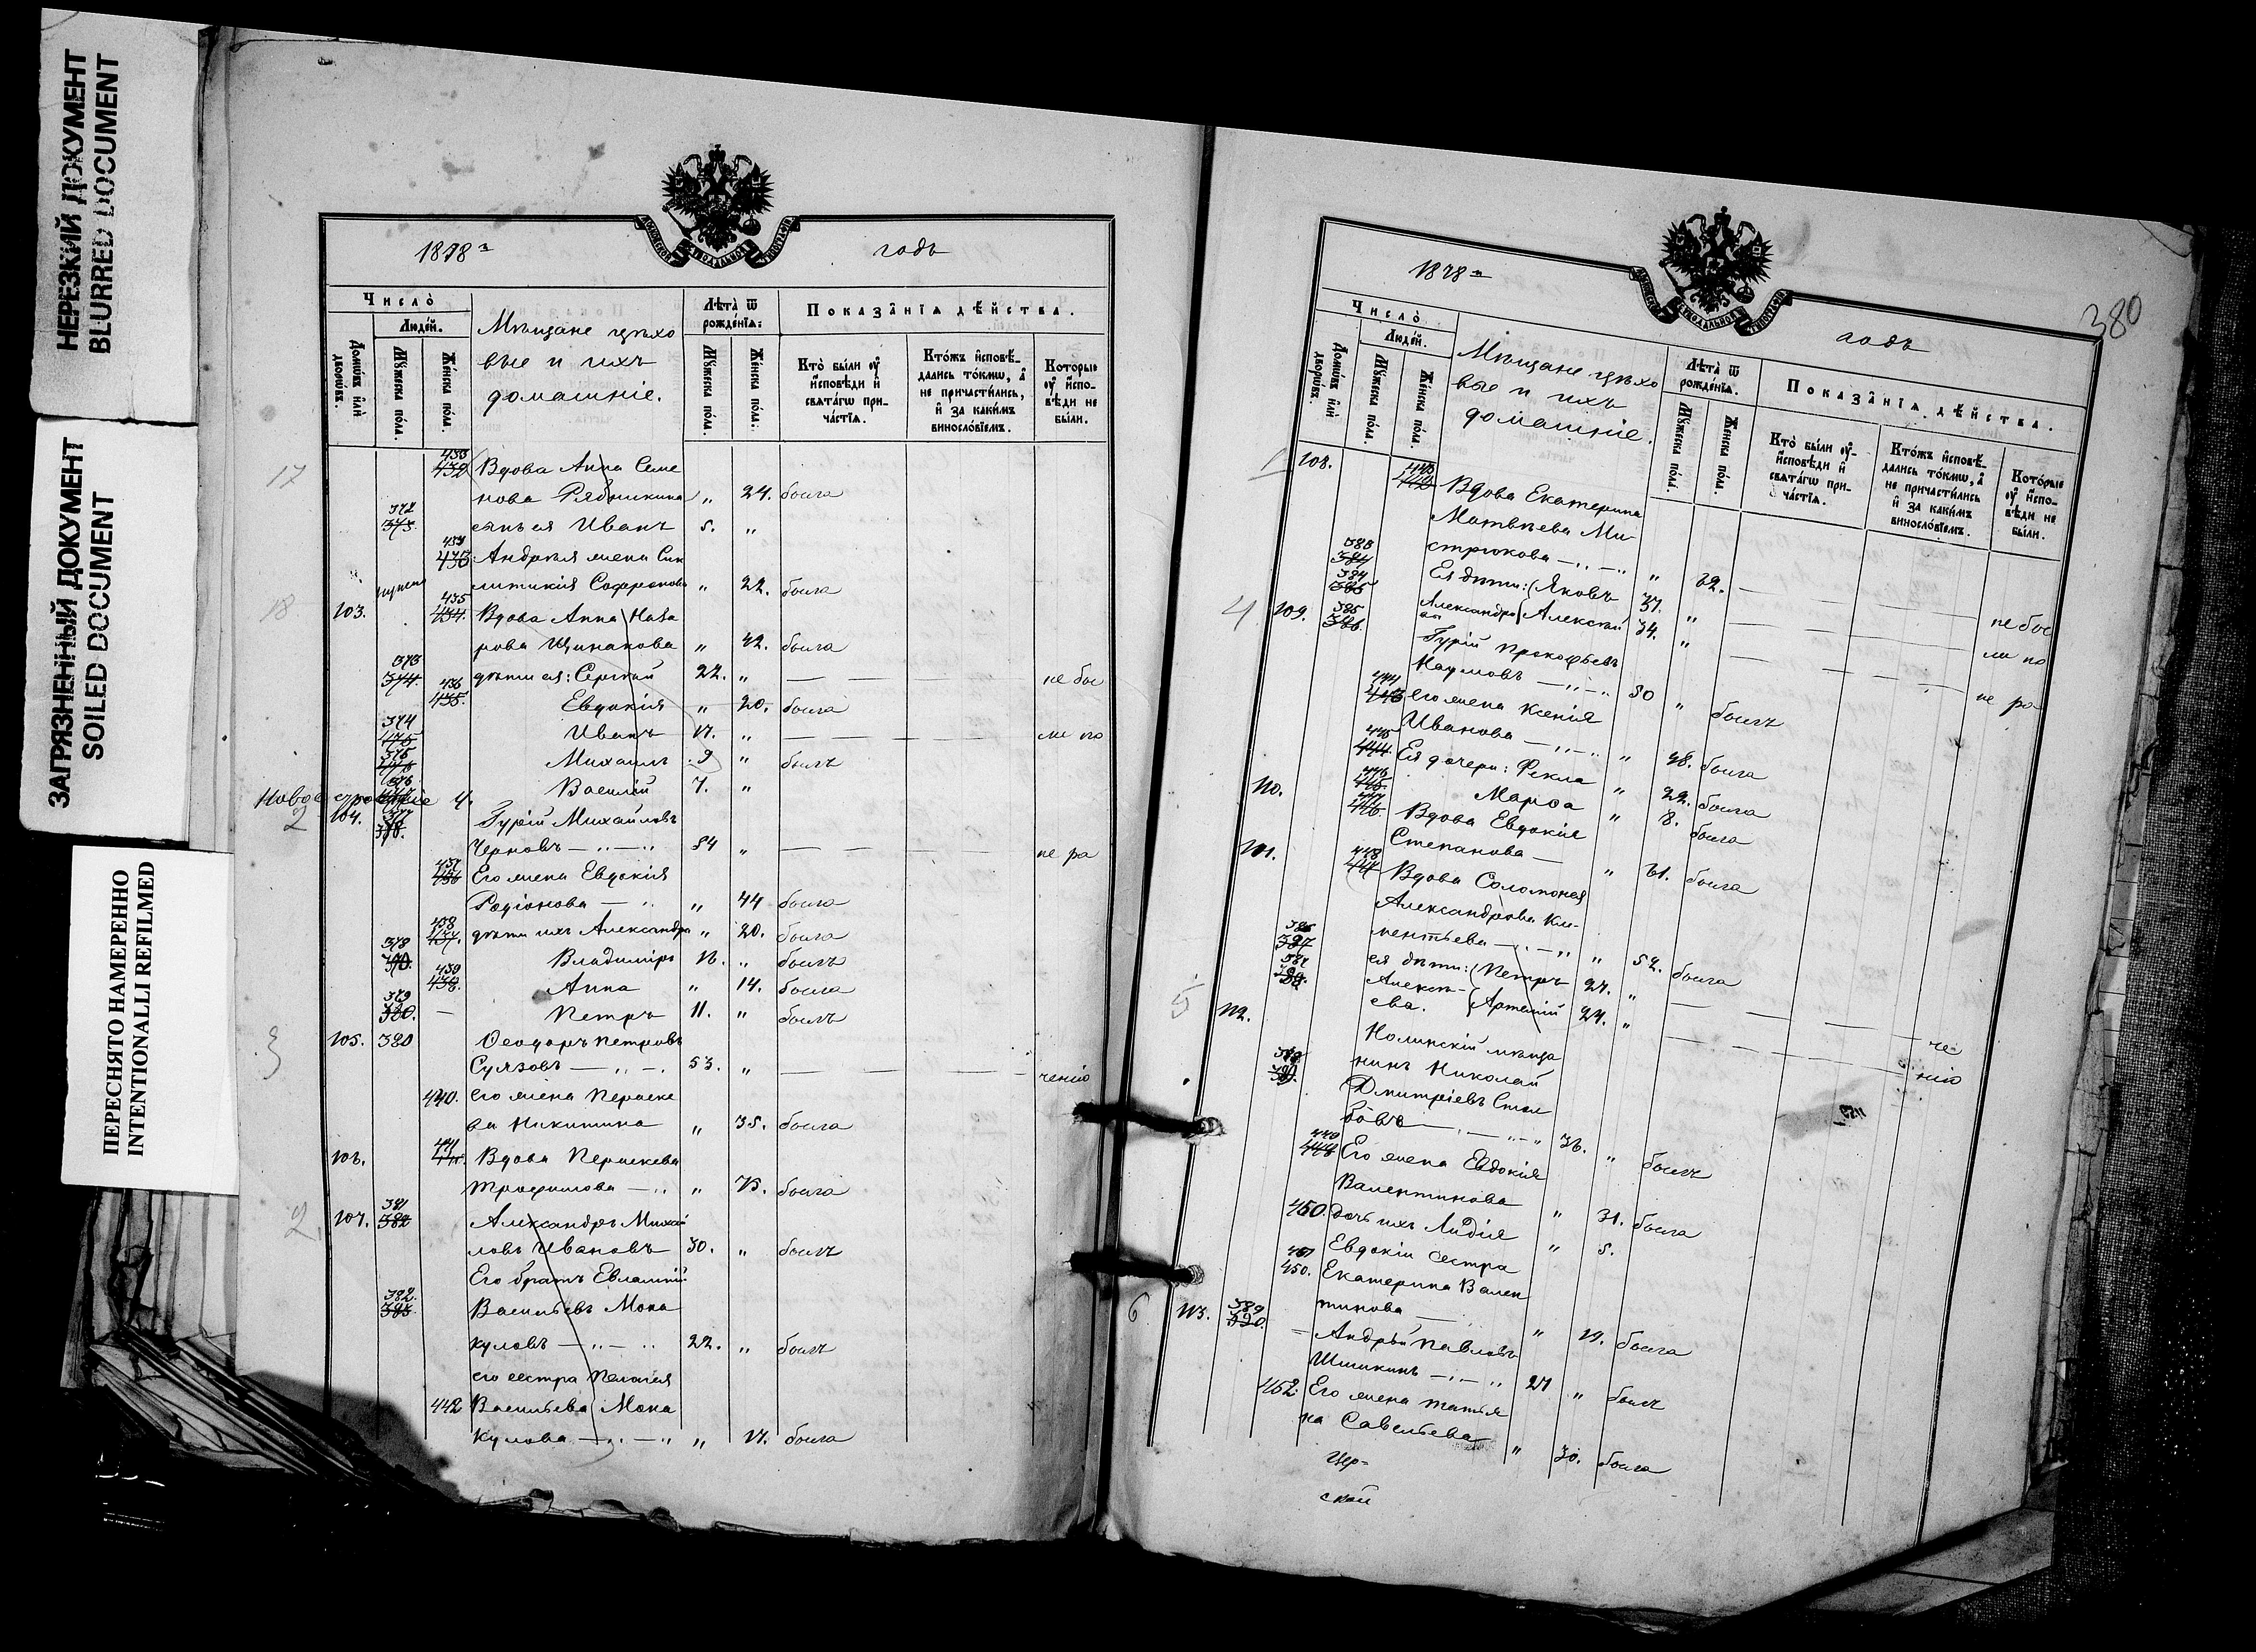 НЕРЕЗКИЙ ДОКУМЕНТ
BLURRED DOCUMENT
ЗАГРЯЗНЕННЫЙ ДОКУМЕНТ
SOILED DOCUMENT
ПЕРЕСНЯТО НАМЕРЕННО
INTENTIONALLI REFILMED
1878 годъ
Число̀
Людей.
Домо́въ и҆лѝ дворо́въ.
Мꙋ́жеска по́ла.
Же́нска по́ла.
Мѣщане цѣхо
вые и ихъ
домашніе.
Лѣта̀ ѿ рожде́нїѧ:
Мꙋ́жеска по́ла.
Же́нска по́ла.
Показа̑нїѧ дѣ́йства.
Кто̀ бы́ли ᲂу҆ и҆сповѣ́ди и҆ свѧта́гѡ при-ча́стїѧ.
Кто́жъ и҆сповѣ́-дались то́кмѡ, а҆ не причасти́лись, и҆ за каки́мъ винословїемъ.
Кото́рые ᲂу҆ и҆спо-вѣди не бы́ли.
17 433 432 Вдова Анна Семе
нова Рябинкина " 24. была
372 373. сынъ ея Иванъ 5. "
434 433 Андрея жена Син
литикія Софронова " 22. была
18 103. 435 434. Вдова Анна Наза
рова Щинакова " 42. была
373 374. дѣти ея: Сергѣй 22. " — — — не бы
436 435. Евдокія " 20. была
374 Иванъ 17. " — — — ли по
375 Михаилъ 9 " былъ
376 Василій 7. "
Новое строеніе 4.
2 104. 377 378. Гурій Михайловъ
Черновъ — " — " 54 " — — — не ра
437 436 Его жена Евдокія
Родіонова — " " 44 была
438 437. дѣти ихъ Александра " 20. была
378 379. Владиміръ 16. " былъ
439 438. Анна " 14. была
379 380. — Петръ 11. " былъ
3 105. 380 Ѳеодоръ Петровъ
Сулзовъ — " — . 53. " — — — ченію
440. его жена Параске
ва Никитина " 35. была
106. 441 Вдова Параскева
Трофимова — " " 75. была
2. 107. 381 382 Александръ Михай
ловъ Ивановъ 30. " былъ
Его братъ Евлампій
382. 383. Васильевъ Мока
куловъ — " — " 22. " былъ
его сестра Пелагея
442 Васильева Мока
кулова — " — " " 17. была
380
1878 годъ
Число̀
Людей.
Домо́въ и҆лѝ дворо́въ.
Мꙋ́жеска по́ла.
Же́нска по́ла.
Мѣщане цѣхо
вые и ихъ
домашніе.
Лѣта̀ ѿ рожде́нїѧ.
Мꙋ́жеска по́ла.
Же́нска по́ла.
Показа̑нїѧ дѣ́йства.
Кто̀ бы́ли ᲂу҆ и҆сповѣ́ди и҆ свѧта́гѡ при-ча́стїѧ.
Кто́жъ и҆сповѣ́-дались то́кмѡ, а҆ не причасти́лись и҆ за каки́мъ винословїемъ.
Кото́рые ᲂу҆ и҆спо-вѣди не бы́ли.
108. Вдова Екатерина
Матвѣева Ми-
стрюкова — " — " " 62. — — — не бы
383 384 Ея дѣти: Яковъ 37. " — — — ли по
384 385 Александро Алексѣй 34. " — — — не ра
4 109. 385 386. Гурій Прокофьевъ
Наумовъ — " — " 50 " былъ
444 его жена Ксенія
Иванова — " — " " 48. была
445 444. Ея дочери: Фекла " 22. была
446 445. Марѳа " 8. была
110. 447 446. Вдова Евдокія
Степанова — " 61. была
111. 448 447 Вдова Соломонея
Александрова Кли-
ментьева — " — " " 52. была
386 387 ея дѣти: Петръ 27. " — — — че-
387 388. Алексѣ-
ева. Артемій 24. " — — — нію
5 112. Нолинскій мѣща
388 389. нинъ Николай
Дмитріевъ Стол
бовъ — " — " — " 36. " былъ
449 448 Его жена Евдокія
Валентинова " 31. была
450. дочь ихъ Лидія " 5.
Евдокіи сестра
451 450. Екатерина Вален
тинова — " 19. была
6 113. 389 390. — Андрей Павловъ
Шишкинъ — " — " 27 " былъ
452. Его жена Татья
на Савельева " 30. была
Цер-
ской